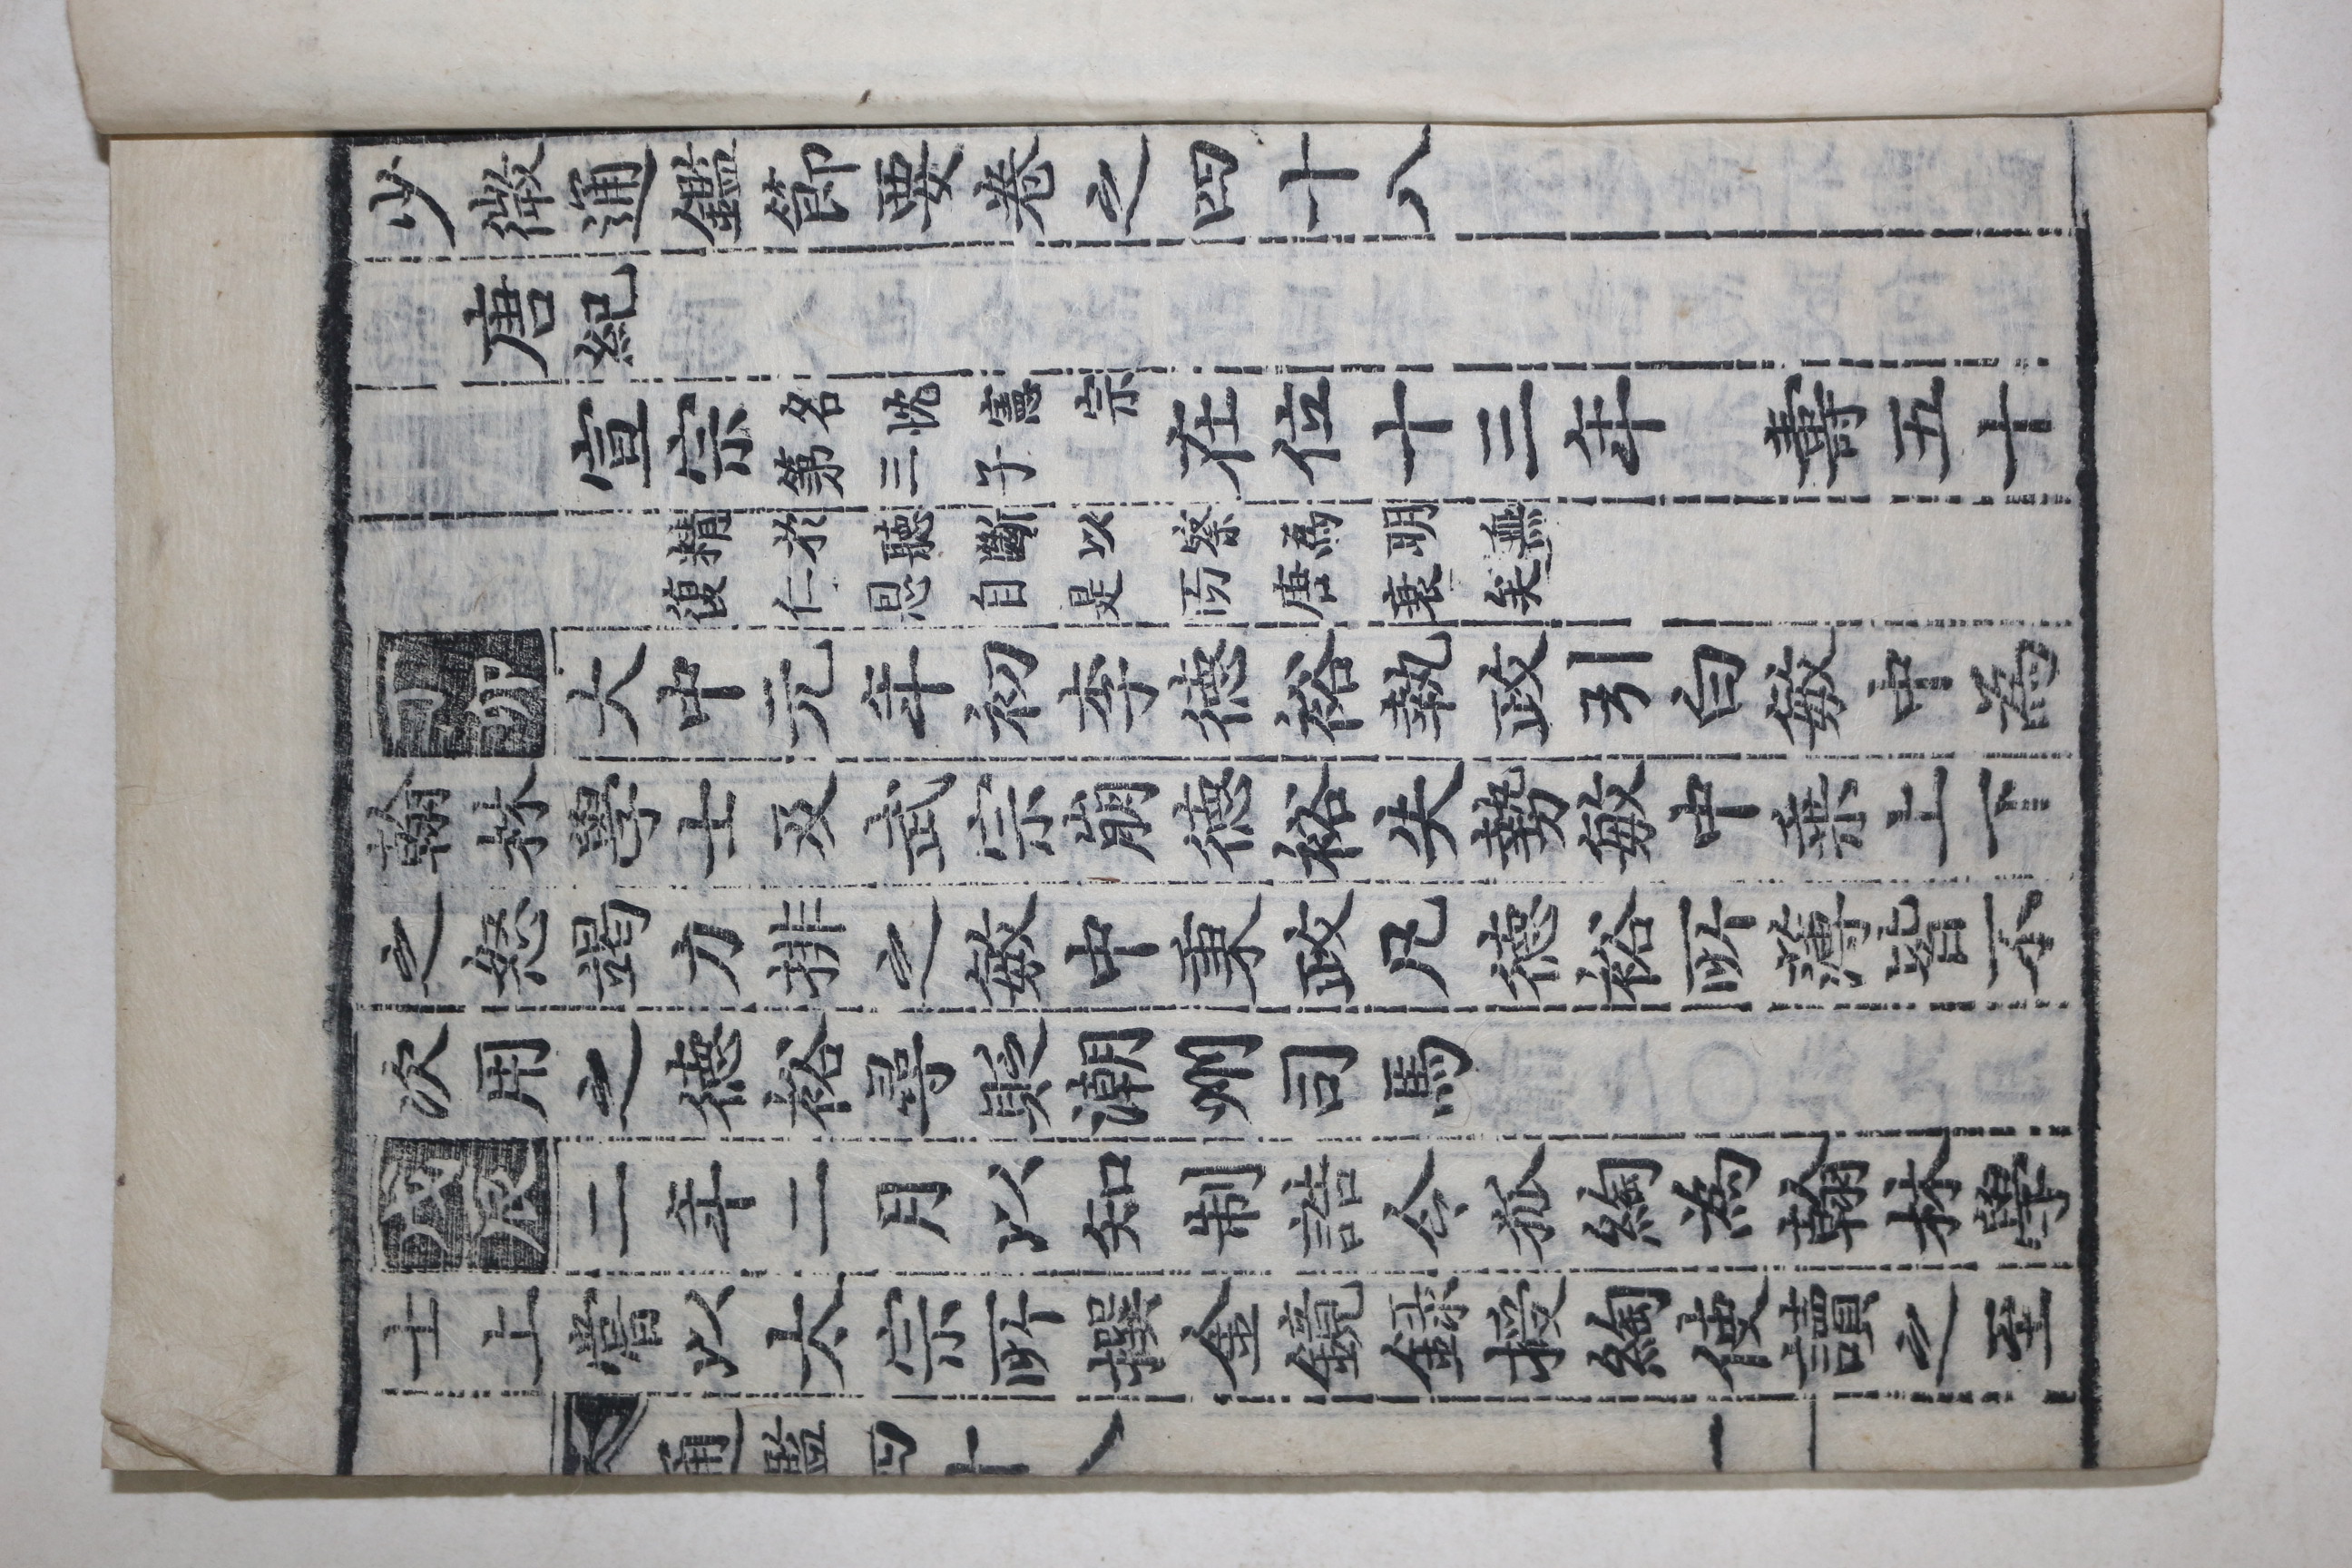 少微通鑑節要卷之四十八
唐紀
宣宗名忱憲宗第三子在位十三年 壽五十
精於聽斷以察爲明無
復仁恩自是而唐衰矣
丁卯大中元年初李德裕執政引白敏中為
翰林學士及武宗崩德裕失勢敏中乗上下
之怒竭力排之敏中秉政凡德裕所薄皆不
次用之德裕尋貶潮州司馬
戊辰二年二月以知制誥令狐綯為翰林學
士上嘗以太宗所撰金鏡録授綯使讀之至
通鑑四十八 一